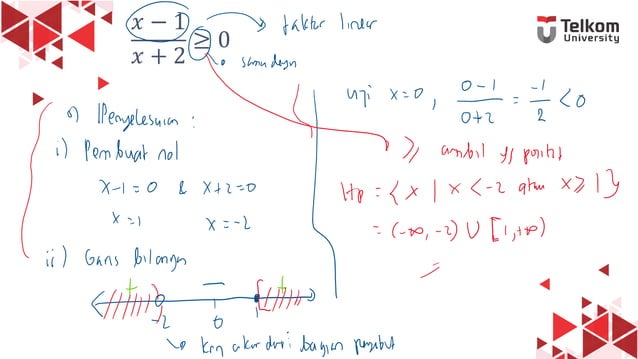 x − 1 → faktor linear
x + 2 ≥ 0
Telkom
University
Penyelesaian :
i) Pembuat nol
x−1=0 & x+2=0
x=1 x=−2
ii) Garis bilangan
+ − +
−2 0 1
krn akar dari bagian penyebut
uji x=0, 0−1 / 0+2 = −1 / 2 < 0
≥ ambil yg positif
Hp = { x | x < −2 atau x ≥ 1 }
= (−∞, −2) ∪ [1, +∞)